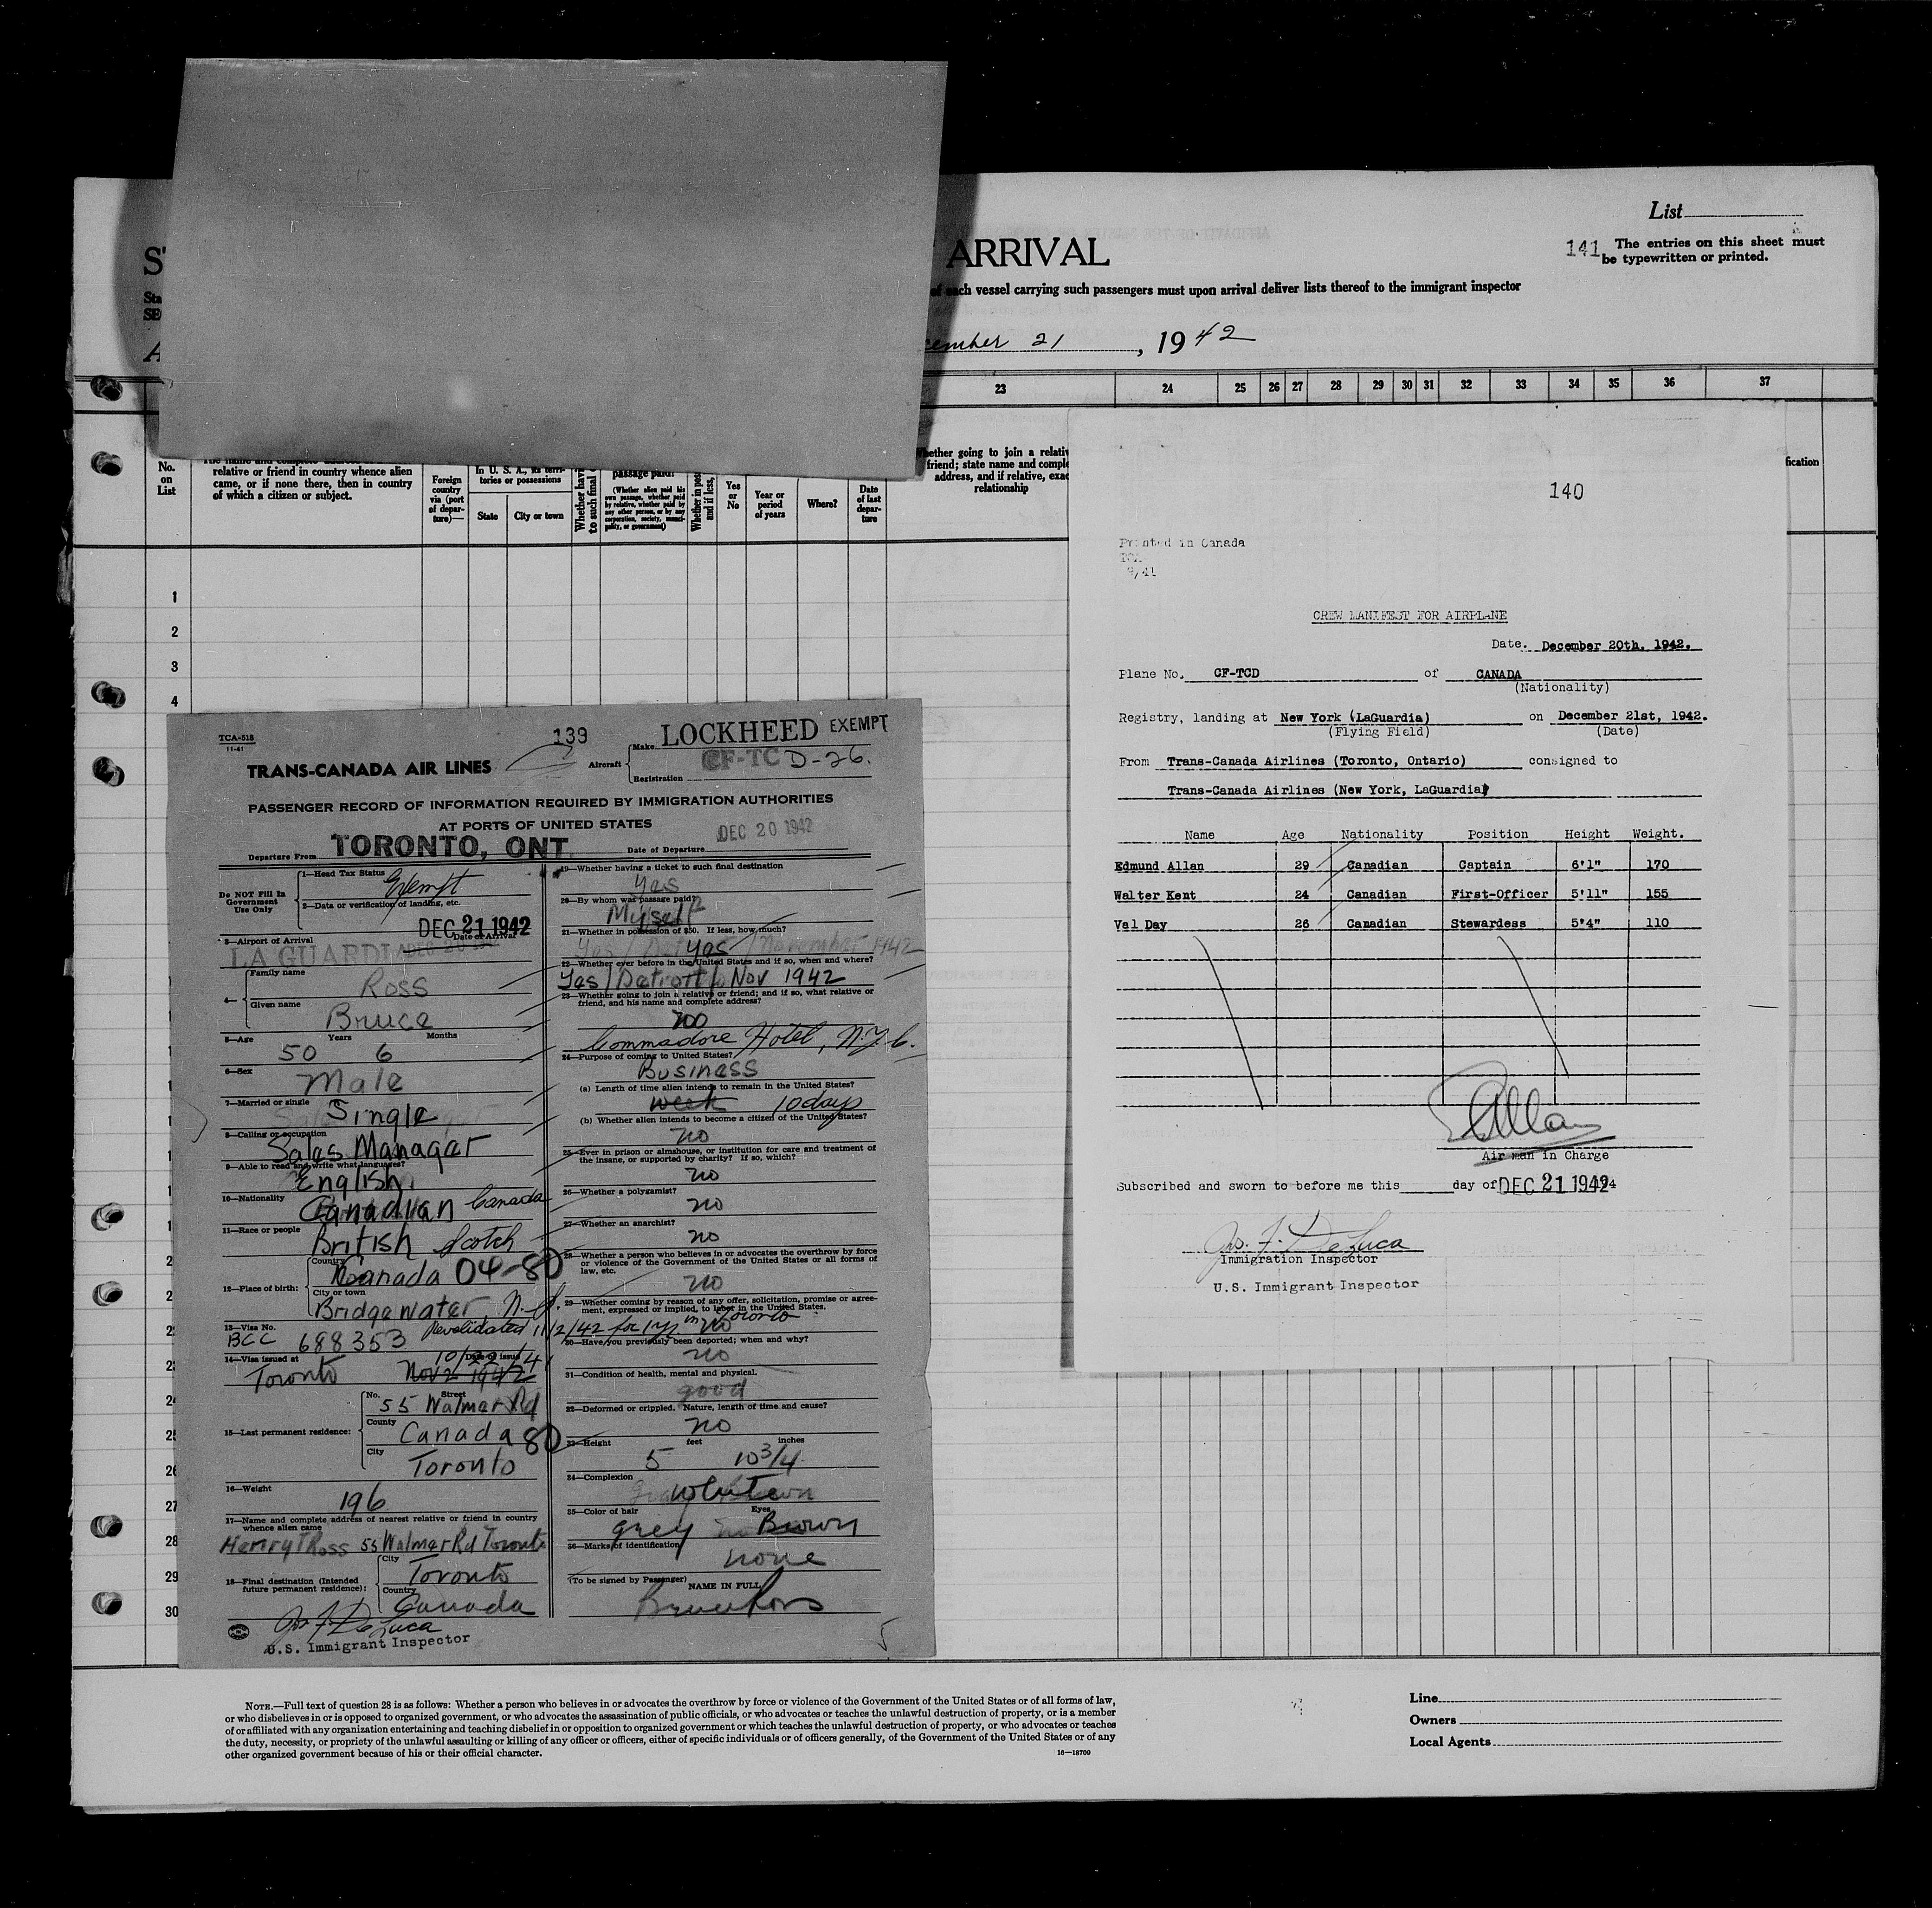 List
ARRIVAL
141
The entries on this sheet must
be typewritten or printed.
of each vessel carrying such passengers must upon arrival deliver lists thereof to the immigrant inspector
cember 21, 1942
23 24 25 26 27 28 29 30 31 32 33 34 35 36 37
No.
on
List
relative or friend in country whence alien
came, or if none there, then in country
of which a citizen or subject.
Foreign
country
via (port
of depar-
ture)—
In U. S. A., its terri-
tories or possessions
State
City or town
passage paid?
(Whether alien paid his
own passage, whether paid
by relative, whether paid by
any other person, or by any
corporation, society, munici-
pality, or government)
Yes
or
No
Year or
period
of years
Where?
Date
of last
depar-
ture
Whether going to join a relativ
friend; state name and comple
address, and if relative, exac
relationship
fication
1
2
3
4
TCA-518
11-41
139
LOCKHEED EXEMPT
TRANS-CANADA AIR LINES
Aircraft
Make
Registration
CF-TC D-26.
PASSENGER RECORD OF INFORMATION REQUIRED BY IMMIGRATION AUTHORITIES
AT PORTS OF UNITED STATES
DEC 20 1942
Departure From TORONTO, ONT. Date of Departure
Do NOT Fill In
Government
Use Only
1—Head Tax Status
Exempt
2—Data or verification of landing, etc.
DEC 21 1942
3—Airport of Arrival
Date of Arrival
LA GUARDIA
4—
Family name
Ross
Given name
Bruce
5—Age Years Months
50 6
6—Sex
Male
7—Married or single
Single
8—Calling or occupation
Sales Manager
9—Able to read and write what languages?
English
10—Nationality
Canadian Canada
11—Race or people
British Scotch
12—Place of birth:
Country
Canada 04-80
City or town
Bridgewater, N.S.
13—Visa No.
BCC 688353 Revalidated 11/2/42 for 1 yr. in Toronto
14—Visa issued at Date of issue
Toronto Nov 2 1942
10/22/41
15—Last permanent residence:
No. Street
55 Walmar Rd
County
Canada 80
City
Toronto
16—Weight
196
17—Name and complete address of nearest relative or friend in country
whence alien came
Henry T Ross 55 Walmar Rd Toronto
18—Final destination (Intended
future permanent residence):
City
Toronto
Country
Canada
Jos. F. De Luca
U.S. Immigrant Inspector
19—Whether having a ticket to such final destination
Yes
20—By whom was passage paid?
Myself
21—Whether in possession of $50. If less, how much?
yes
22—Whether ever before in the United States and if so, when and where?
Yes / Detroit / Nov 1942
23—Whether going to join a relative or friend; and if so, what relative or
friend, and his name and complete address?
no
Commadore Hotel, N.Y.C.
24—Purpose of coming to United States?
Business
(a) Length of time alien intends to remain in the United States?
week 10 days
(b) Whether alien intends to become a citizen of the United States?
no
25—Ever in prison or almshouse, or institution for care and treatment of
the insane, or supported by charity? If so, which?
no
26—Whether a polygamist?
no
27—Whether an anarchist?
no
28—Whether a person who believes in or advocates the overthrow by force
or violence of the Government of the United States or all forms of
law, etc.
no
29—Whether coming by reason of any offer, solicitation, promise or agree-
ment, expressed or implied, to labor in the United States.
no
30—Have you previously been deported; when and why?
no
31—Condition of health, mental and physical.
good
32—Deformed or crippled. Nature, length of time and cause?
no
33—Height feet inches
5 10 3/4
34—Complexion
White
35—Color of hair Eyes
grey Brown
36—Marks of identification
none
(To be signed by Passenger) NAME IN FULL
Bruce Ross
24
25
26
27
28
29
30
140
Printed in Canada
TCA
9/41
CREW MANIFEST FOR AIRPLANE
Date. December 20th, 1942.
Plane No. CF-TCD of CANADA
(Nationality)
Registry, landing at New York (LaGuardia) on December 21st, 1942.
(Flying Field) (Date)
From Trans-Canada Airlines (Toronto, Ontario) consigned to
Trans-Canada Airlines (New York, LaGuardia)
Name Age Nationality Position Height Weight.
Edmund Allan 29 Canadian Captain 6'1" 170
Walter Kent 24 Canadian First-Officer 5'11" 155
Val Day 26 Canadian Stewardess 5'4" 110
EAllan
Air man in Charge
Subscribed and sworn to before me this day of DEC 21 1942 194
Jos. F. De Luca
Immigration Inspector
U.S. Immigrant Inspector
NOTE.—Full text of question 28 is as follows: Whether a person who believes in or advocates the overthrow by force or violence of the Government of the United States or of all forms of law,
or who disbelieves in or is opposed to organized government, or who advocates the assassination of public officials, or who advocates or teaches the unlawful destruction of property, or is a member
of or affiliated with any organization entertaining and teaching disbelief in or opposition to organized government or which teaches the unlawful destruction of property, or who advocates or teaches
the duty, necessity, or propriety of the unlawful assaulting or killing of any officer or officers, either of specific individuals or of officers generally, of the Government of the United States or of any
other organized government because of his or their official character.
16—18709
Line
Owners
Local Agents